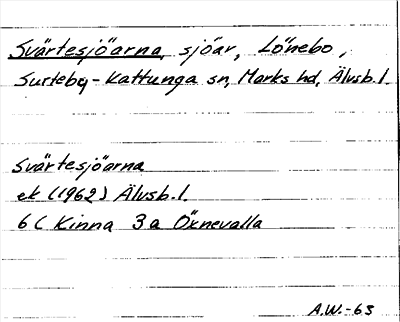 Svärtesjöarna, sjöar, Lönebo,
Surteby-Kattunga sn, Marks hd, Älvsb. l.
Svärtesjöarna
ek (1962) Älvsb. l.
6 C Kinna 3 a Öxnevalla
A.W.-63